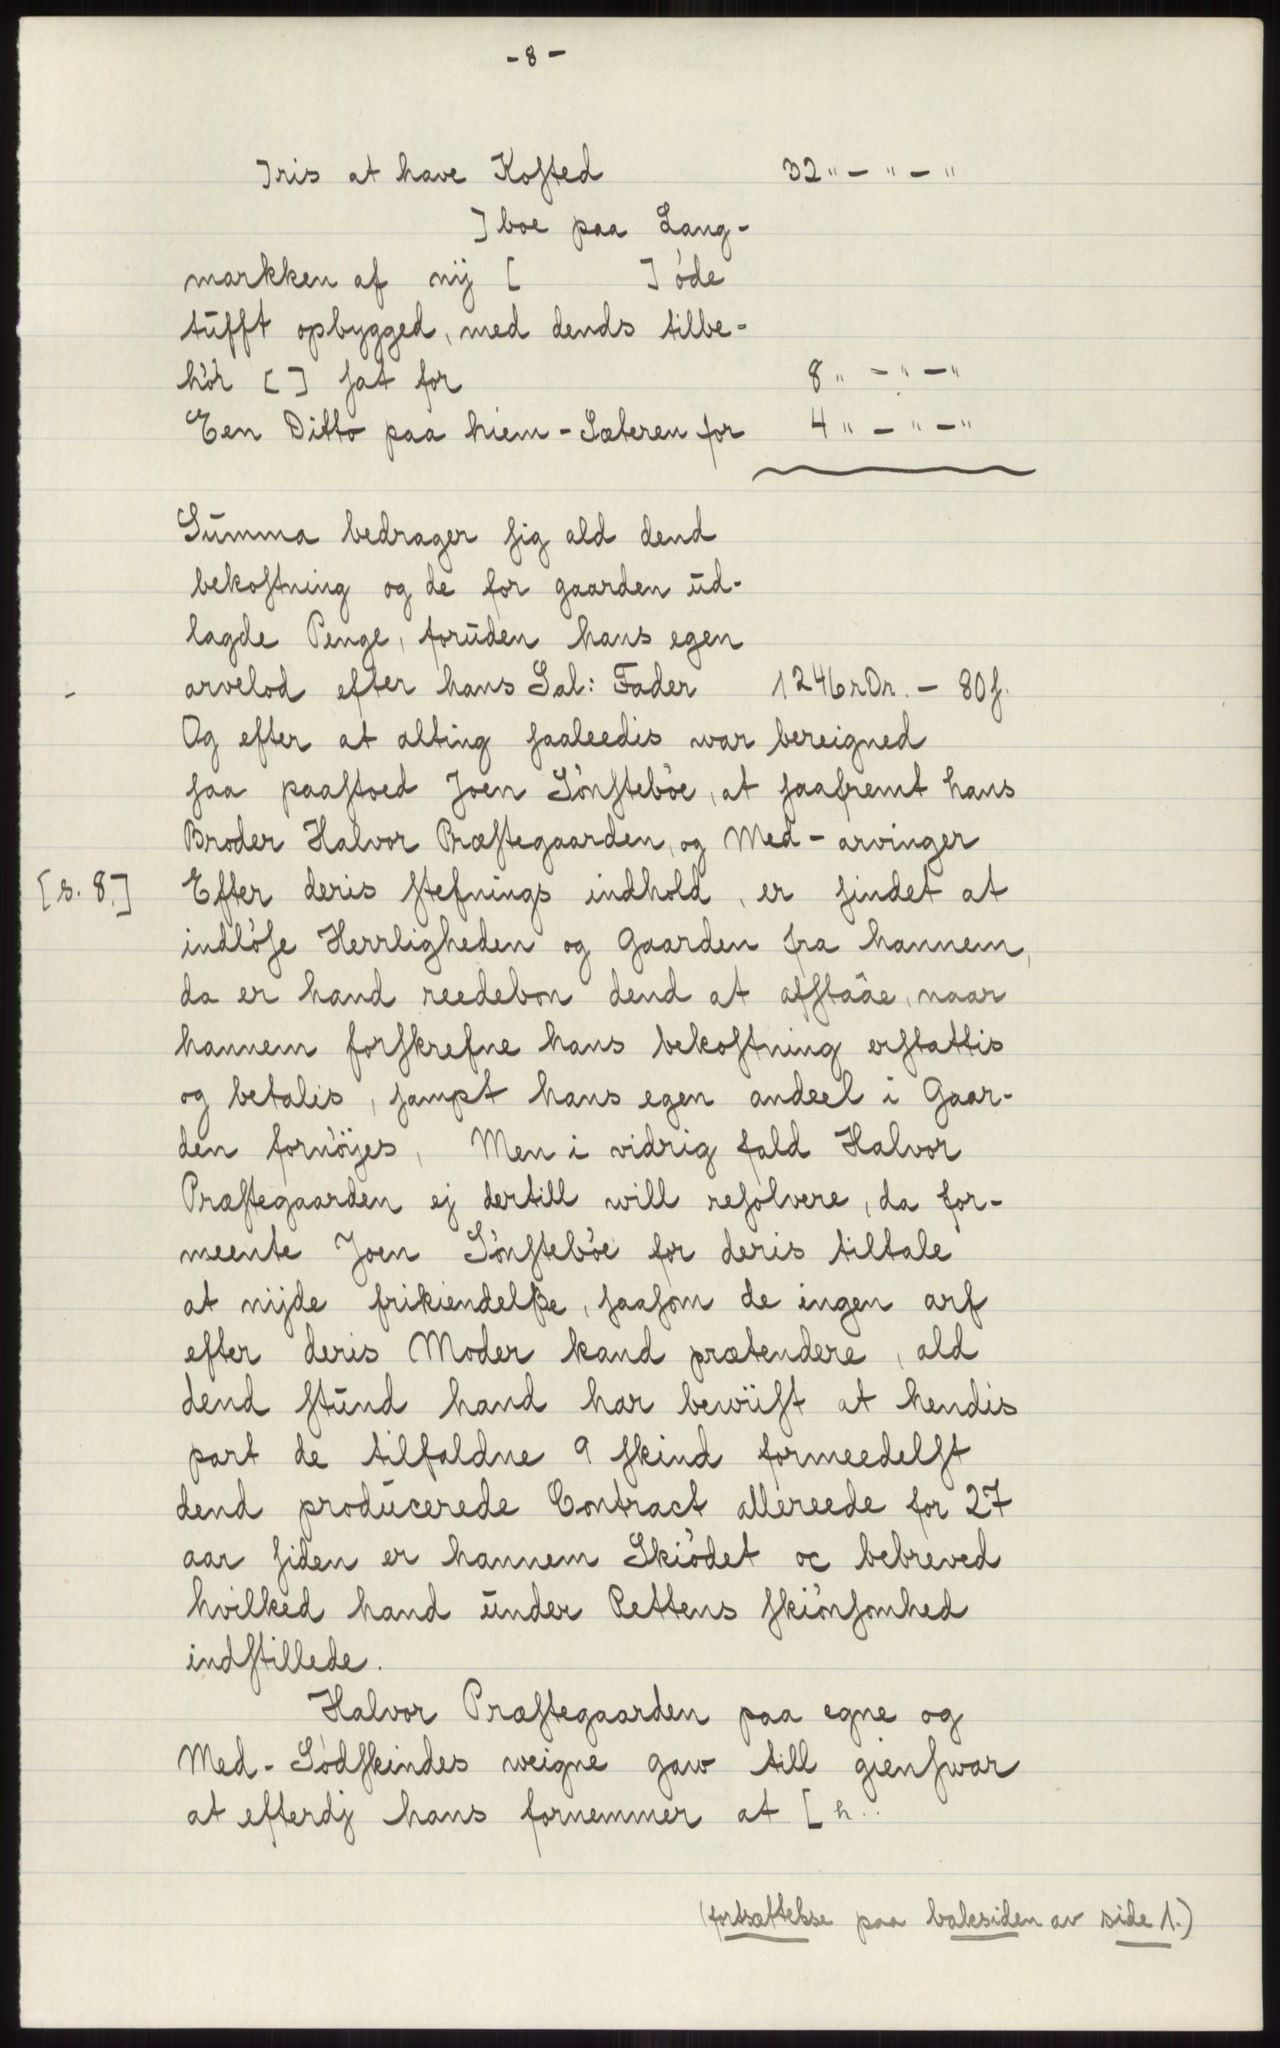 - 8 -
]ris at have Kosted 32 " - " - "
] boe paa Lang-
markken af nÿ [ ] øde
tufft opbygged, med dends tilbe-
hör [ ] sat for 8 " - " - "
Een Ditto paa hiem-Sæteren for 4 " - " - "
Summa bedrager sig ald dend
bekostning og de for gaarden ud-
lagde Penge, foruden hans egen
arvelod efter hans Sal: Fader 1246 rDr. - 80 s.
Og efter at alting saaleedis war bereigned
saa paastoed Joen Sönsteböe, at saafremt hans
Broder Halvor Præstegaarden, og Med-arvinger
[s. 8.] Efter deris stefnings indhold, er sindet at
indlöse Herrligheden og Gaarden fra hannem,
da er hand reedebon dend at afstaae, naar
hannem forskrefne hans bekostning erstattis
og betalis, sampt hans egen andeel i Gaar-
den fornöyes, Men i vidrig fald Halvor
Præstegaarden ej dertill will resolvere, da for-
meente Joen Sönsteböe for deris tiltale
at nijde frikiendelße, saasom de ingen arf
efter deris Moder kand prætendere, ald
dend stund hand har bewiist at hendis
part de tilfaldne 9 skind formeedelst
dend producerede Contract allereede for 27
aar siden er hannem Skiödet oc bebreved
hvilked hand under Rettens skiönsomhed
indstillede.
Halvor Præstegaarden paa egne og
Med-Södskindes weigne gaw till giensvar
at efterdj hans fornemmer at [ h..
(fortsættelse paa baksiden av side 1.)